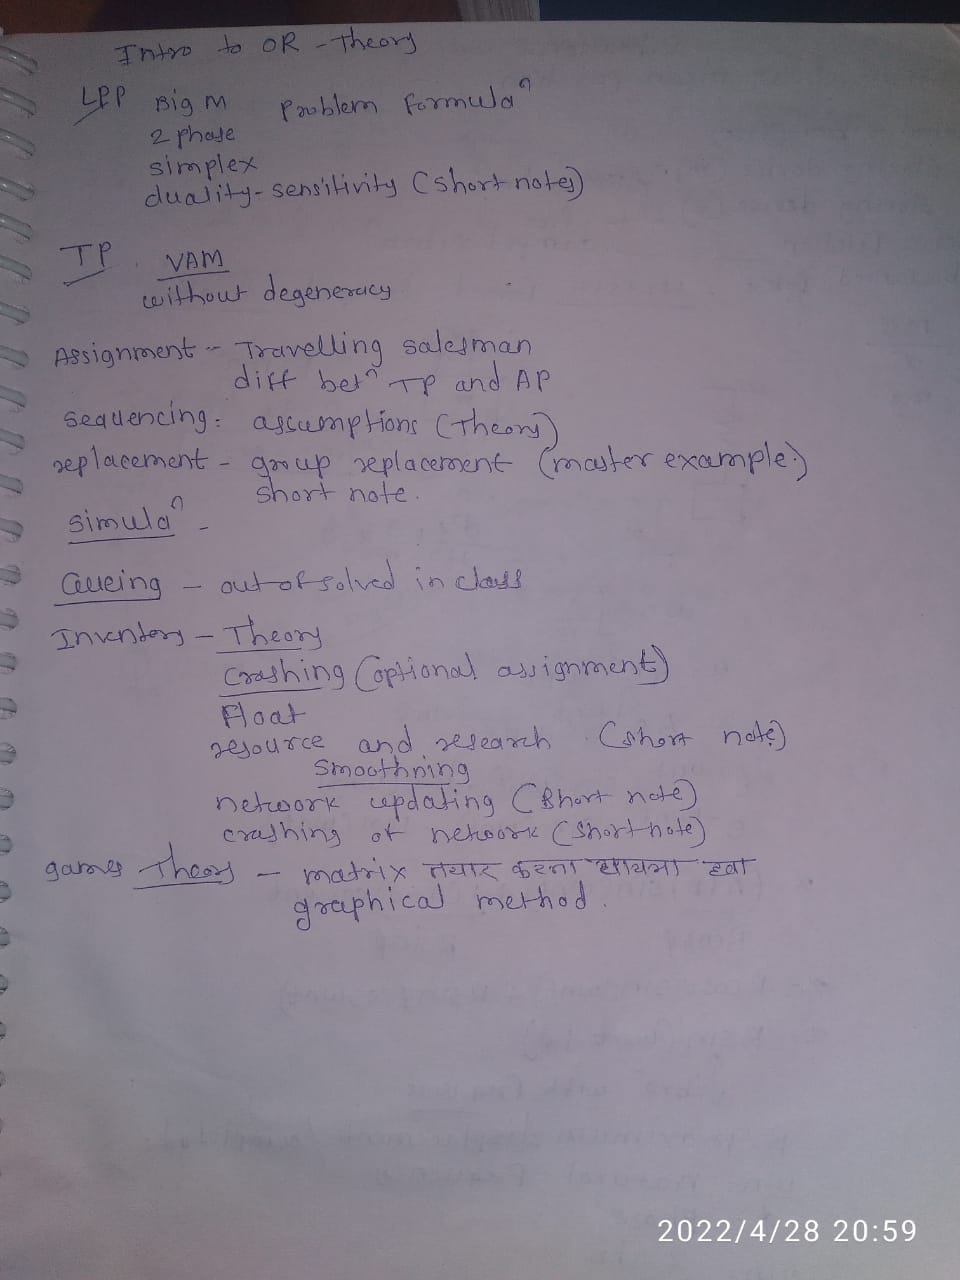 Intro to OR - Theory
LPP Big M Problem Formulaⁿ
2 phase
simplex
duality - sensitivity (short notes)
TP VAM
without degeneracy
Assignment - Travelling salesman
diff betⁿ TP and AP
sequencing: assumptions (Theory)
replacement - group replacement (master example)
short note.
simulaⁿ -
Queing - out of solved in class
Inventory - Theory
Crashing (optional assignment)
Float
resource and research (short note)
smoothning
network updating (short note)
crashing of network (short note)
games Theory - matrix तयार करता यायला हवा
graphical method.
2022/4/28 20:59